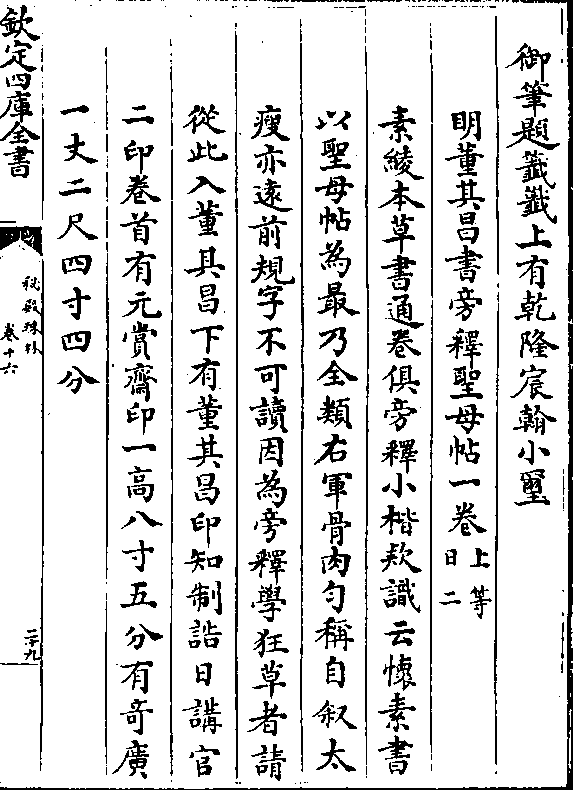 御筆題籤籤上有乾隆宸翰小璽
明董其昌書旁釋聖母帖一卷上等日二
素綾本草書通卷俱旁釋小楷欵識云懷素書
以聖母帖為最乃全類右軍骨肉勻稱自叙太
瘦亦遠前規字不可讀因為旁釋學狂草者請
從此入董其昌下有董其昌印知制誥日講官
二印卷首有元賞齋印一高八寸五分有竒廣
一丈二尺四寸四分
欽定四庫全書
秘殿珠林
卷十六
二十九